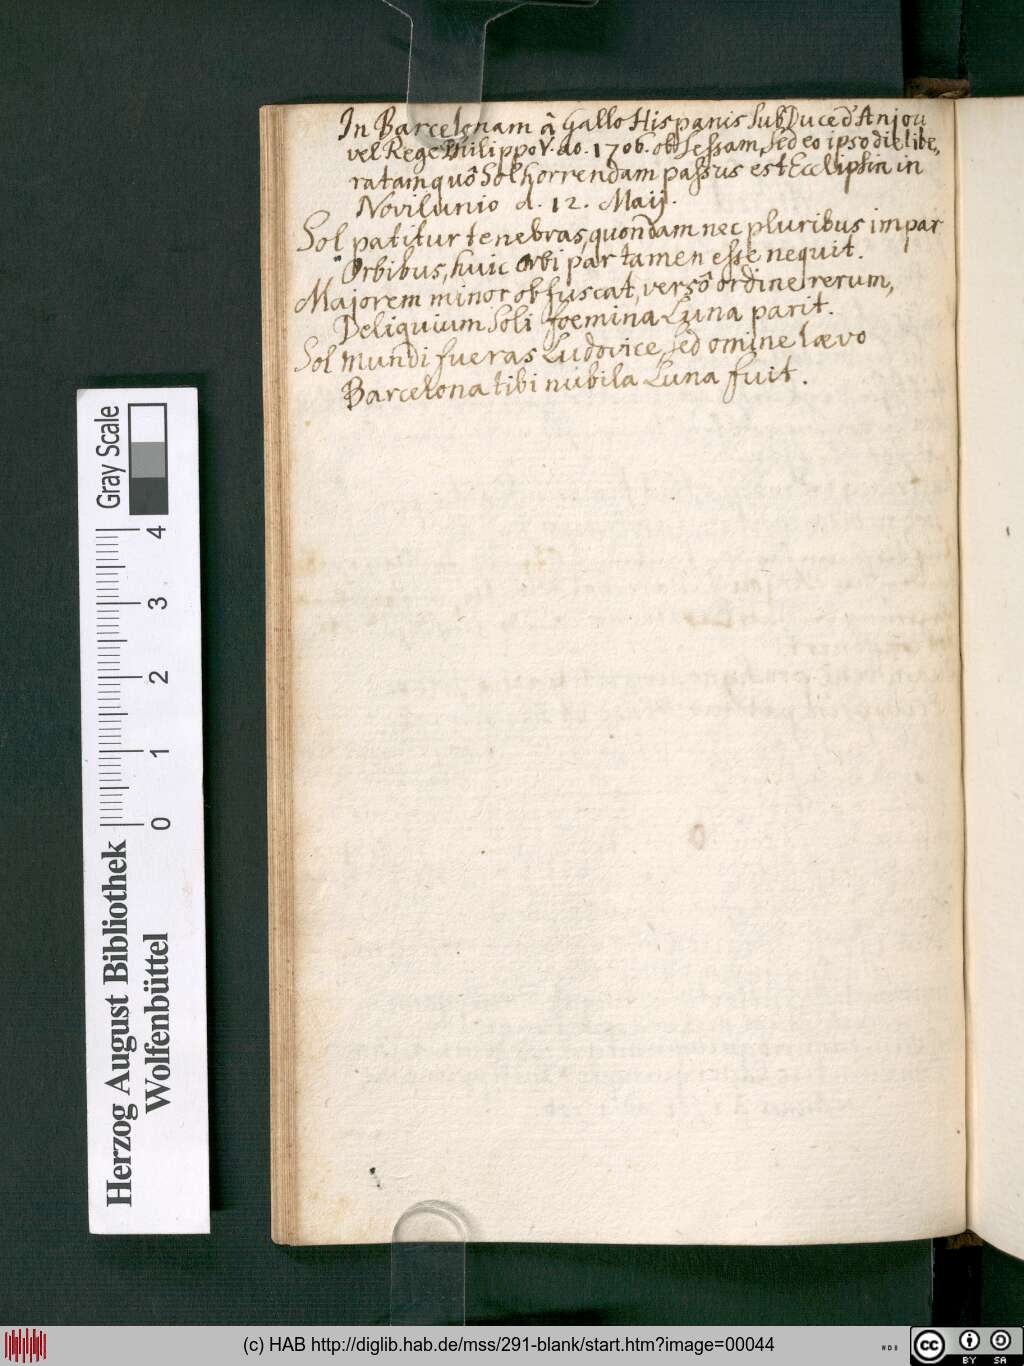 In Barcelonam â Gallo Hispanis sub Duce d'Anjou
vel Rege Philippo V. ao. 1706. obsessam, sed eo ipso die libe,
ratam quô Sol horrendam passus est Ecclipsin in
Novilunio d. 12. Maij.
Sol patitur tenebras, quondam nec pluribus impar
Orbibus, huic Orbi par tamen esse nequit.
Majorem minor obfuscat, versô ordine rerum,
Deliquium Soli foemina Luna parit.
Sol mundi fueras Ludovice sed omine lævo
Barcelona tibi nubila Luna fuit.
Gray Scale
4
3
2
1
0
Herzog August Bibliothek
Wolfenbüttel
(c) HAB http://diglib.hab.de/mss/291-blank/start.htm?image=00044
WDB
cc
BY SA